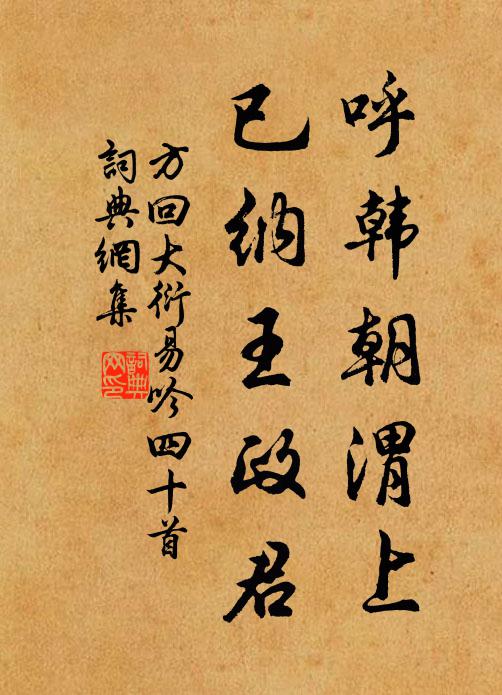 呼韩朝渭上
已纳王政君
方回大衍易吟四十首
詞典網集
詞典網印